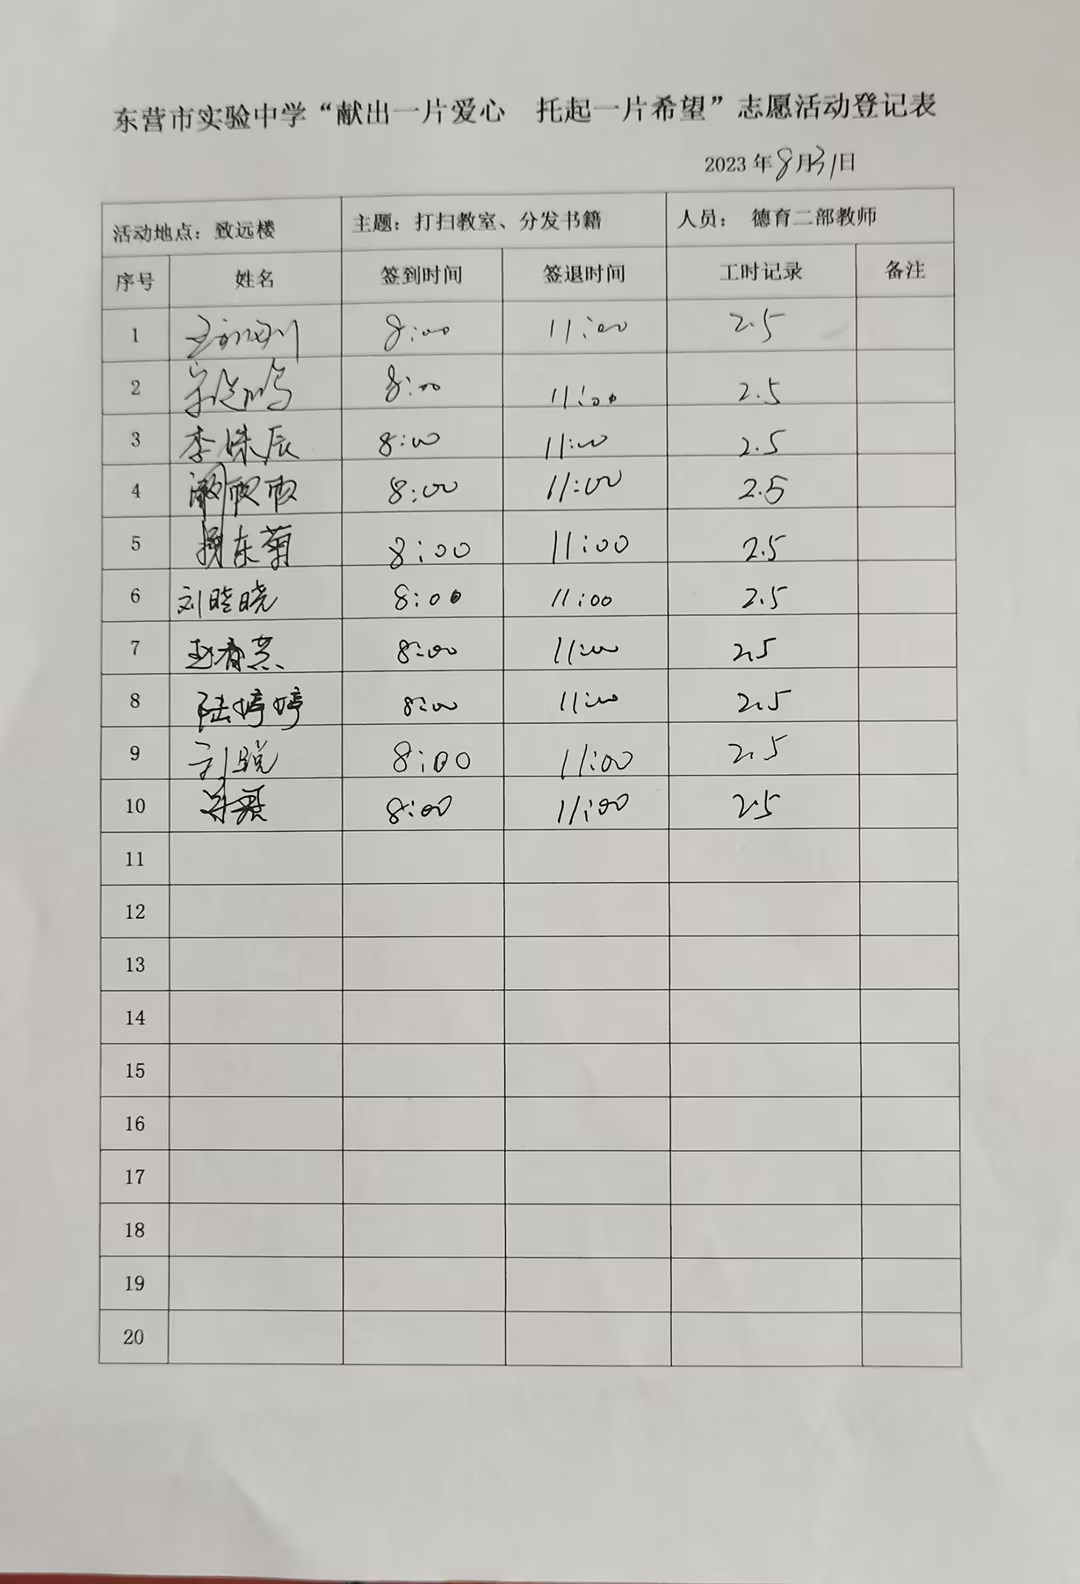 东营市实验中学“献出一片爱心 托起一片希望”志愿活动登记表
2023年8月31日
活动地点：致远楼 主题：打扫教室、分发书籍 人员： 德育二部教师
序号 姓名 签到时间 签退时间 工时记录 备注
1 8:00 11:00 2.5
2 8:00 11:00 2.5
3 李姝辰 8:00 11:00 2.5
4 8:00 11:00 2.5
5 东菊 8:00 11:00 2.5
6 刘晓晓 8:00 11:00 2.5
7 8:00 11:00 2.5
8 陆婷婷 8:00 11:00 2.5
9 刘 8:00 11:00 2.5
10 8:00 11:00 2.5
11
12
13
14
15
16
17
18
19
20